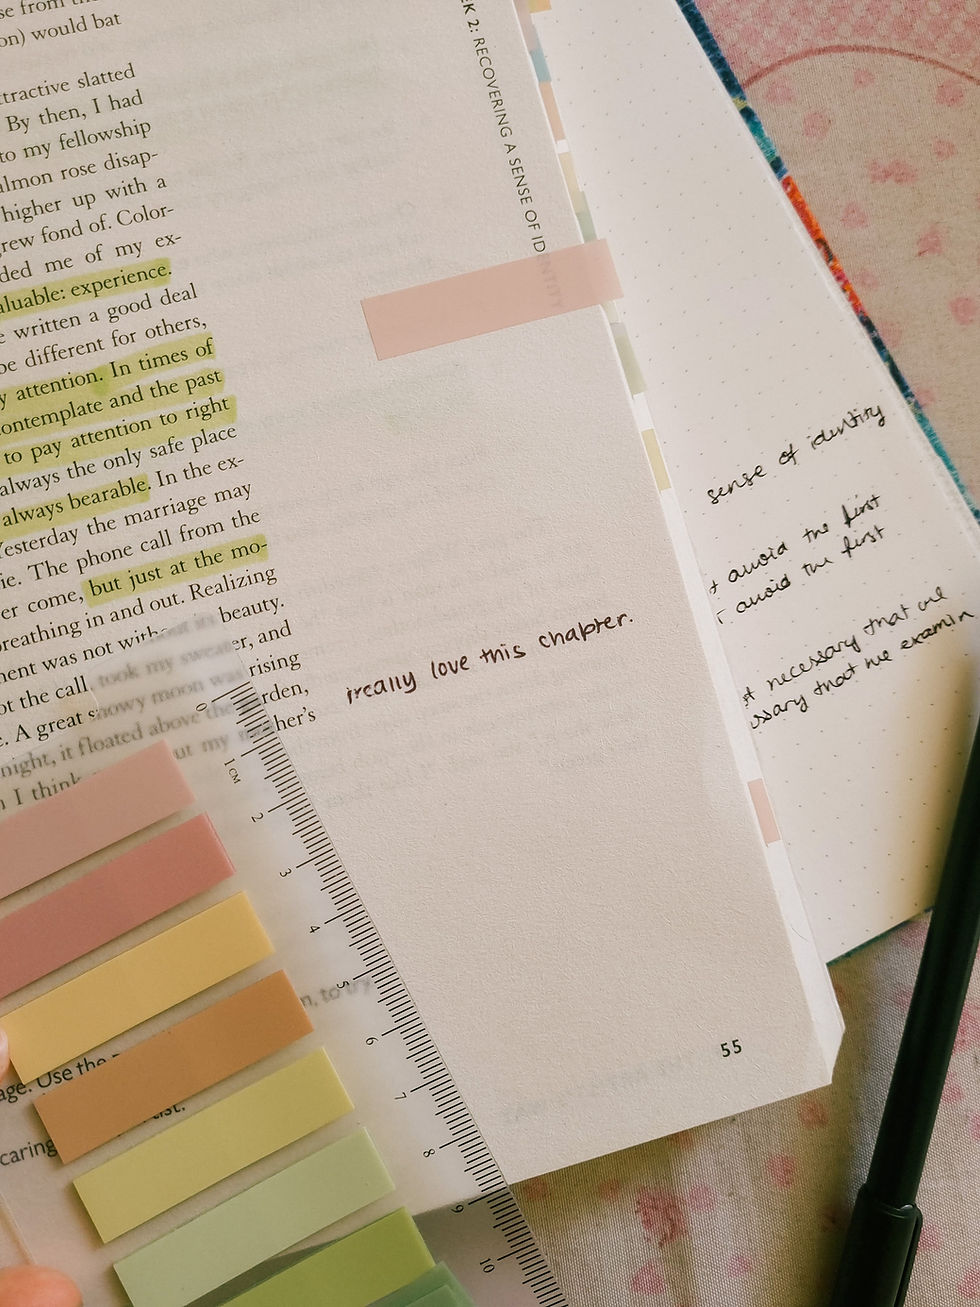 on) would bat
ttractive slatted
By then, I had
to my fellowship
almon rose disap-
higher up with a
grew fond of. Color-
ded me of my ex-
aluable: experience.
e written a good deal
be different for others,
y attention. In times of
ontemplate and the past
to pay attention to right
always the only safe place
always bearable. In the ex-
Yesterday the marriage may
ie. The phone call from the
er come, but just at the mo-
breathing in and out. Realizing
ment was not without its beauty.
ot the call, took my sweater, and
e. A great snowy moon was rising
night, it floated above the garden,
I think out my
EK 2: RECOVERING A SENSE OF IDENTITY
i really love this chapter.
55
n, to try
age. Use the
caring
0
1 CM
2
3
4
5
6
7
8
9
10
sense of identity
avoid the first
avoid the first
necessary that we
ssary that we examin